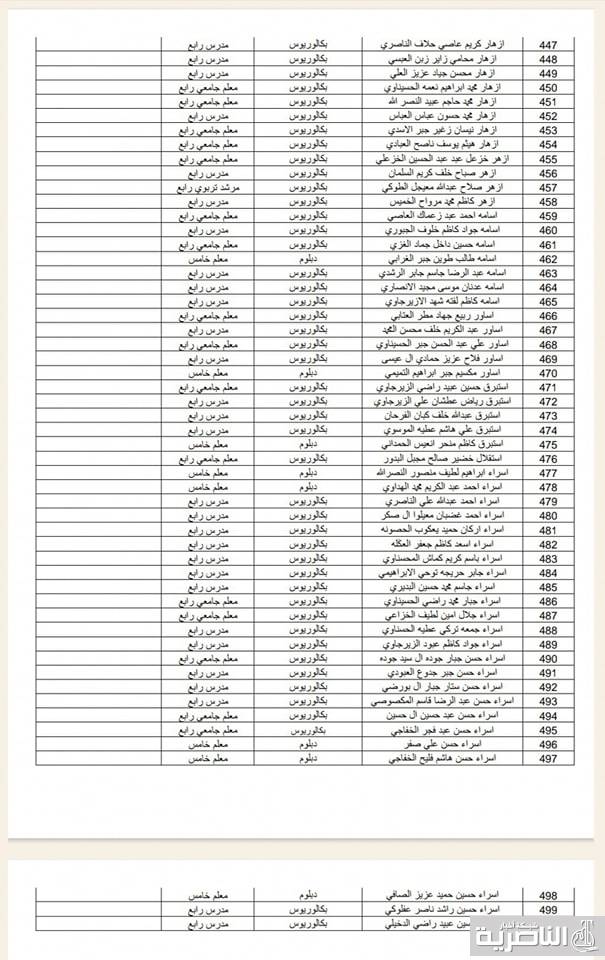 447 ازهار كريم عاصي حلاف الناصري بكالوريوس مدرس رابع
448 ازهار محامي زاير زبن العبسي بكالوريوس مدرس رابع
449 ازهار محسن جياد عزيز العلي بكالوريوس مدرس رابع
450 ازهار محمد ابراهيم نعمه الحسيناوي بكالوريوس معلم جامعي رابع
451 ازهار محمد حاجم عبيد النصر الله بكالوريوس معلم جامعي رابع
452 ازهار محمد حسون عباس العباس بكالوريوس مدرس رابع
453 ازهار نيسان زغير جبر الاسدي بكالوريوس معلم جامعي رابع
454 ازهار هيثم يوسف ناصح العبادي بكالوريوس معلم جامعي رابع
455 ازهر خزعل عبد عبد الحسين الخزعلي بكالوريوس معلم جامعي رابع
456 ازهر صباح خلف كريم السلمان بكالوريوس مدرس رابع
457 ازهر صلاح عبدالله معيجل الطوكي بكالوريوس مرشد تربوي رابع
458 ازهر كاظم محمد مرواح الخميس بكالوريوس مدرس رابع
459 اسامه احمد عبد زعماك العاصي بكالوريوس معلم جامعي رابع
460 اسامه جواد كاظم خلوف الجبوري بكالوريوس مدرس رابع
461 اسامه حسين داخل جماد الغزي بكالوريوس معلم جامعي رابع
462 اسامه طالب طوين جبر الغرابي دبلوم معلم خامس
463 اسامه عبد الرضا جاسم جابر الرشدي بكالوريوس مدرس رابع
464 اسامه عدنان موسى مجيد الانصاري بكالوريوس مدرس رابع
465 اسامه كاظم لفته شهد الازيرجاوي بكالوريوس مدرس رابع
466 اساور ربيع جهاد مطر العتابي بكالوريوس معلم جامعي رابع
467 اساور عبد الكريم خلف محسن المحمد بكالوريوس مدرس رابع
468 اساور علي عبد الحسن جبر الحسيناوي بكالوريوس معلم جامعي رابع
469 اساور فلاح عزيز حمادي ال عيسى بكالوريوس مدرس رابع
470 اساور مكسيم جبر ابراهيم التميمي دبلوم معلم خامس
471 استبرق حسين عبيد راضي الزيرجاوي بكالوريوس معلم جامعي رابع
472 استبرق رياض عطشان علي الزيرجاوي بكالوريوس مدرس رابع
473 استبرق عبدالله خلف كبان الفرحان بكالوريوس مدرس رابع
474 استبرق علي هاشم عطيه الموسوي بكالوريوس مدرس رابع
475 استبرق كاظم منحر انعيس الحمداني دبلوم معلم خامس
476 استقلال خضير صالح مجبل البدور بكالوريوس معلم جامعي رابع
477 اسراء ابراهيم لطيف منصور النصرالله دبلوم معلم خامس
478 اسراء احمد عبد الكريم محمد الهداوي دبلوم معلم خامس
479 اسراء احمد عبدالله علي الناصري بكالوريوس مدرس رابع
480 اسراء احمد غضبان معيلوا ال صكر بكالوريوس مدرس رابع
481 اسراء اركان حميد يعكوب الحصونه بكالوريوس مدرس رابع
482 اسراء اسعد كاظم جعفر العكله بكالوريوس مدرس رابع
483 اسراء باسم كريم كماش المحسناوي بكالوريوس مدرس رابع
484 اسراء جابر حريجه توحي الابراهيمي بكالوريوس مدرس رابع
485 اسراء جاسم محمد حسين البديري بكالوريوس مدرس رابع
486 اسراء جبار محمد راضي الحسيناوي بكالوريوس معلم جامعي رابع
487 اسراء جلال امين لطيف الخزاعي بكالوريوس معلم جامعي رابع
488 اسراء جمعه تركي عطيه الحسناوي بكالوريوس مدرس رابع
489 اسراء جواد كاظم عبود الزيرجاوي بكالوريوس مدرس رابع
490 اسراء حسن جبار جوده ال سيد جوده بكالوريوس معلم جامعي رابع
491 اسراء حسن جبر جدوع العبودي بكالوريوس مدرس رابع
492 اسراء حسن ستار جبار ال بورضي بكالوريوس مدرس رابع
493 اسراء حسن عبد الرضا قاسم المكصوصي بكالوريوس مدرس رابع
494 اسراء حسن عبد حسين ال حسين بكالوريوس معلم جامعي رابع
495 اسراء حسن عبد فجر الخفاجي بكالوريوس معلم جامعي رابع
496 اسراء حسن علي صفر دبلوم معلم خامس
497 اسراء حسن هاشم فليح الخفاجي دبلوم معلم خامس
498 اسراء حسين حميد عزيز الصافي دبلوم معلم خامس
499 اسراء حسين راشد ناصر عفلوكي بكالوريوس مدرس رابع
عبيد راضي الدخيلي بكالوريوس مدرس رابع
شبكة اخبار
الناصرية